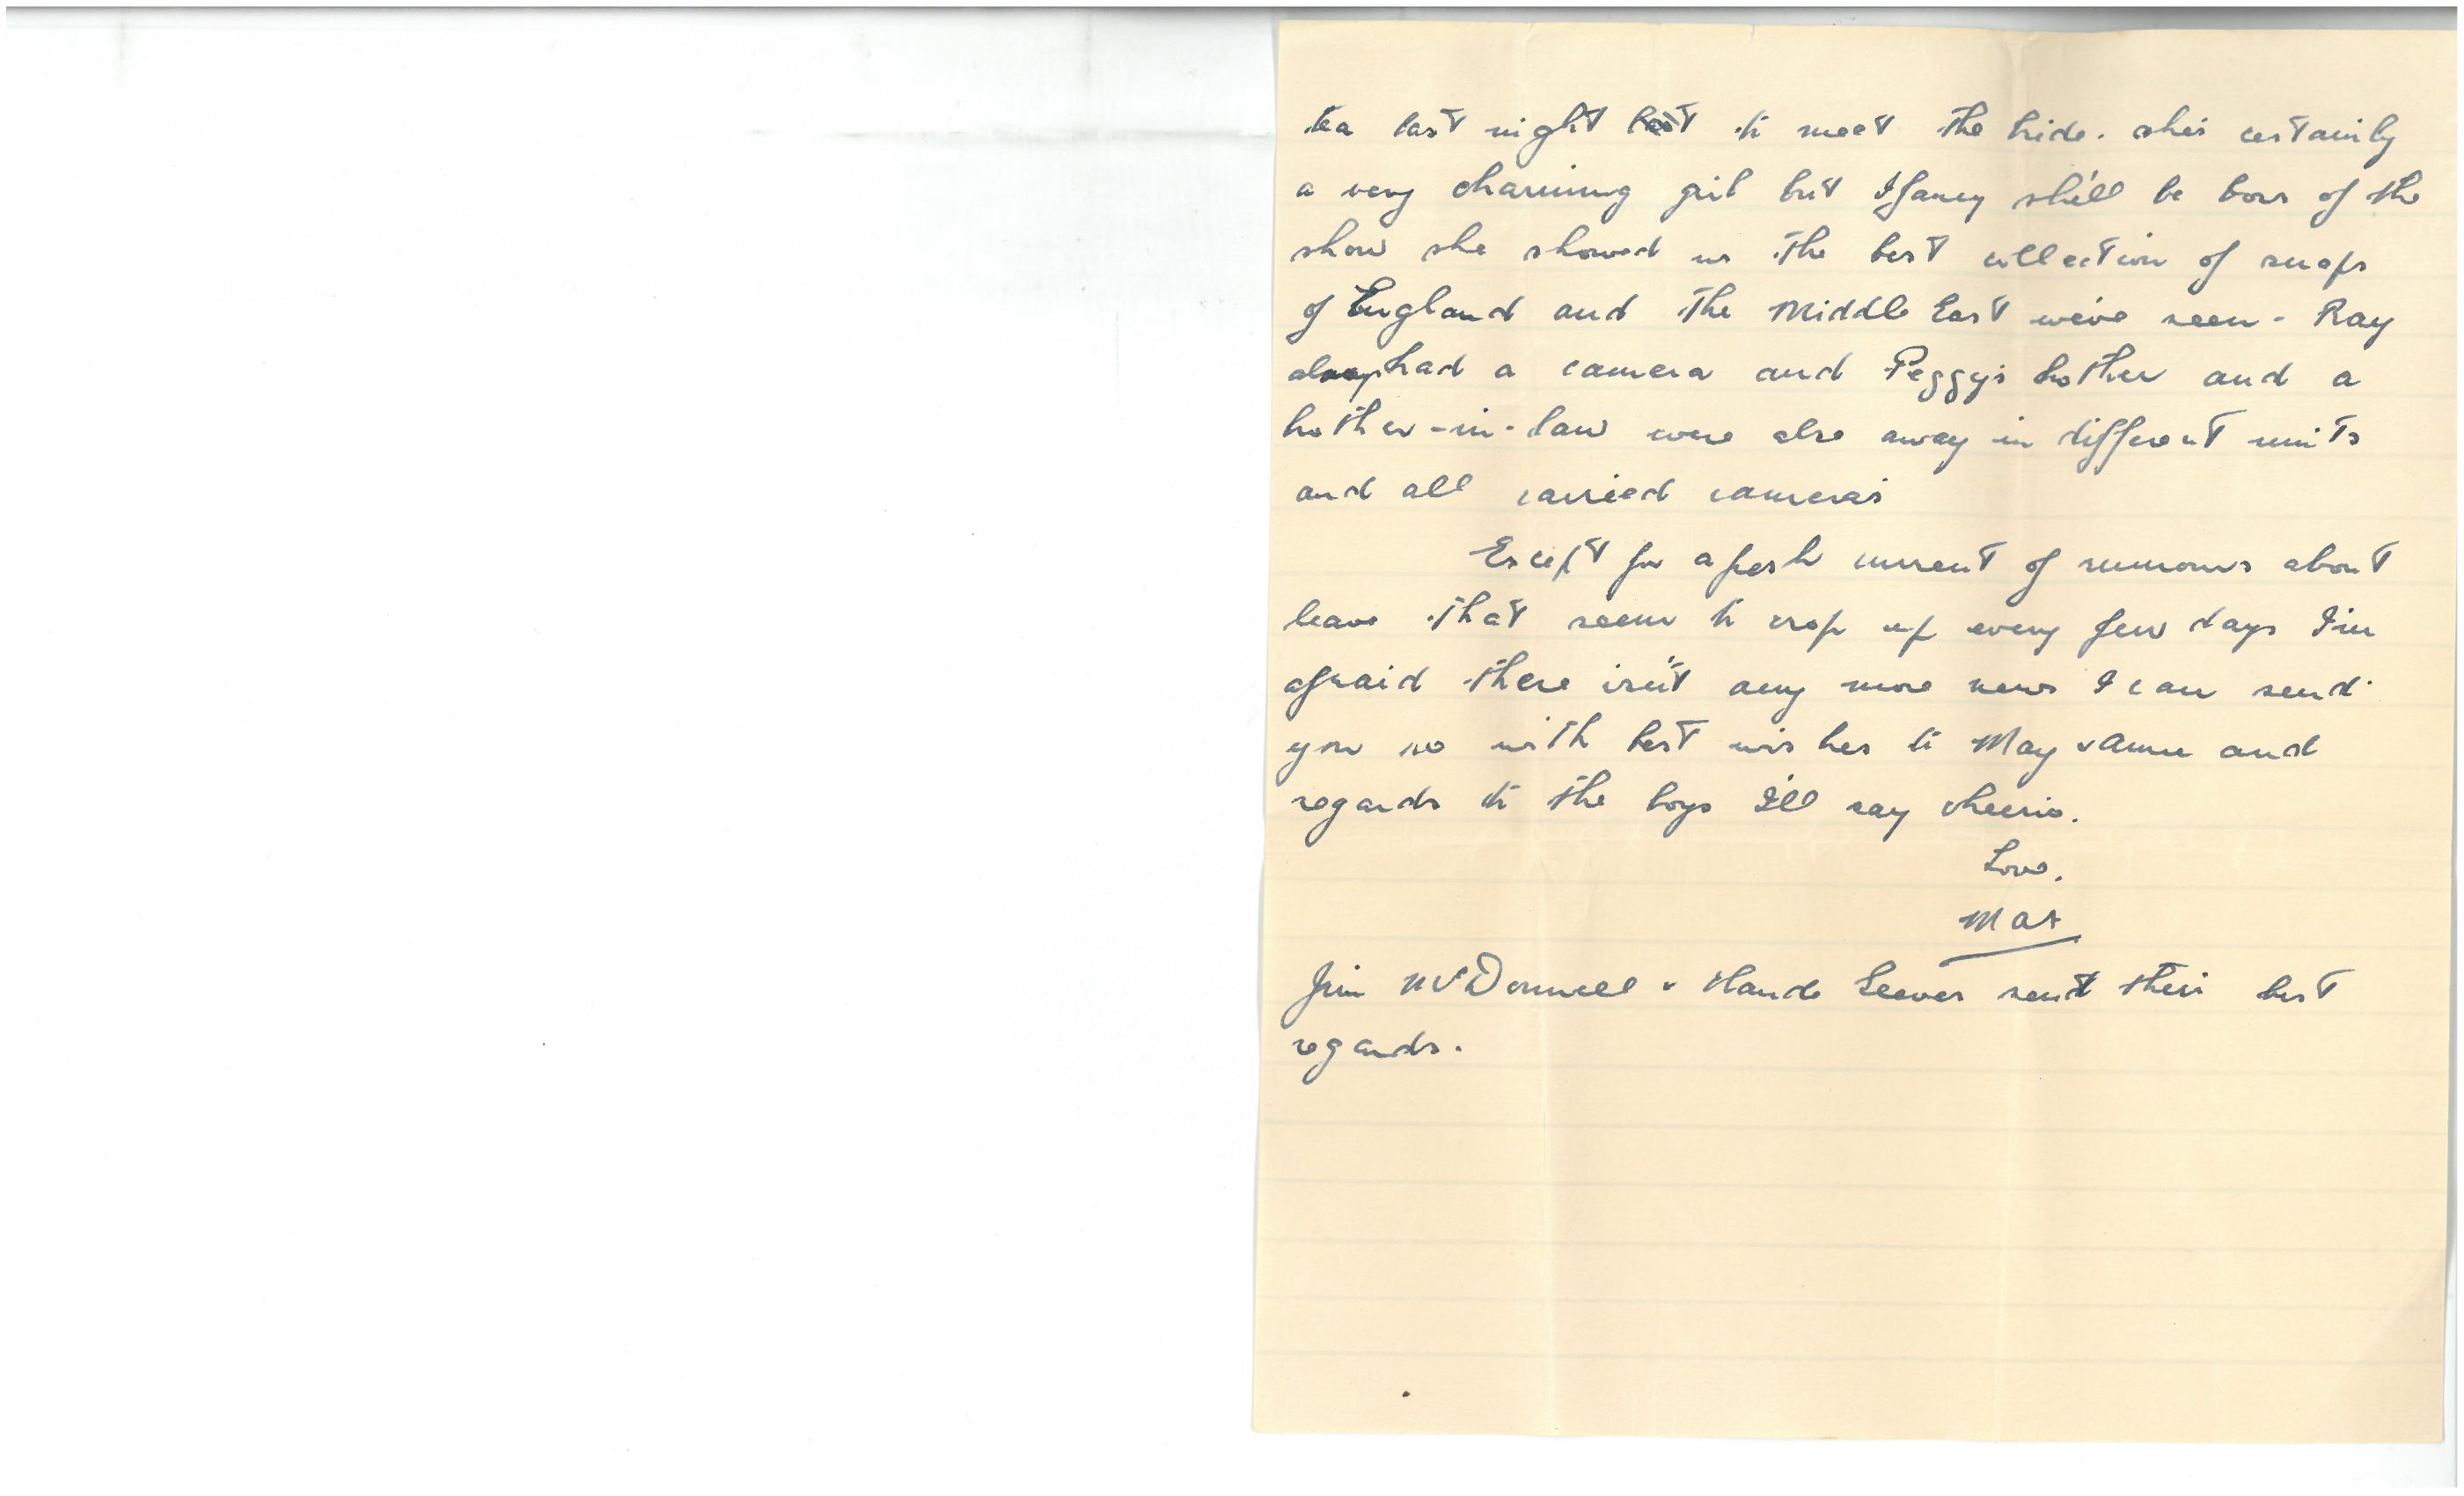 tea last night to meet the bride. she's certainly
a very charming girl but I fancy she'll be boss of the
show she showed us the best collection of snaps
of England and the Middle East we've seen - Ray
had a camera and Peggy's brother and a
brother-in-law were also away in different units
and all carried camera's
Except for a fresh current of rumours about
leave that seem to crop up every few days I'm
afraid there isn't any more news I can send
you so with best wishes to May & Anne and
regards to the boys I'll say cheerio.
Love.
Max
Jim McDonnell & Claude Leever sent their best
regards.